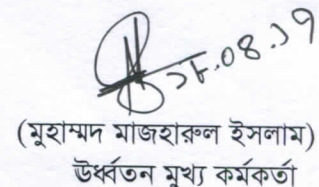 (মুহাম্মদ মাজহারুল ইসলাম)
উর্ধ্বতন মুখ্য কর্মকর্তা